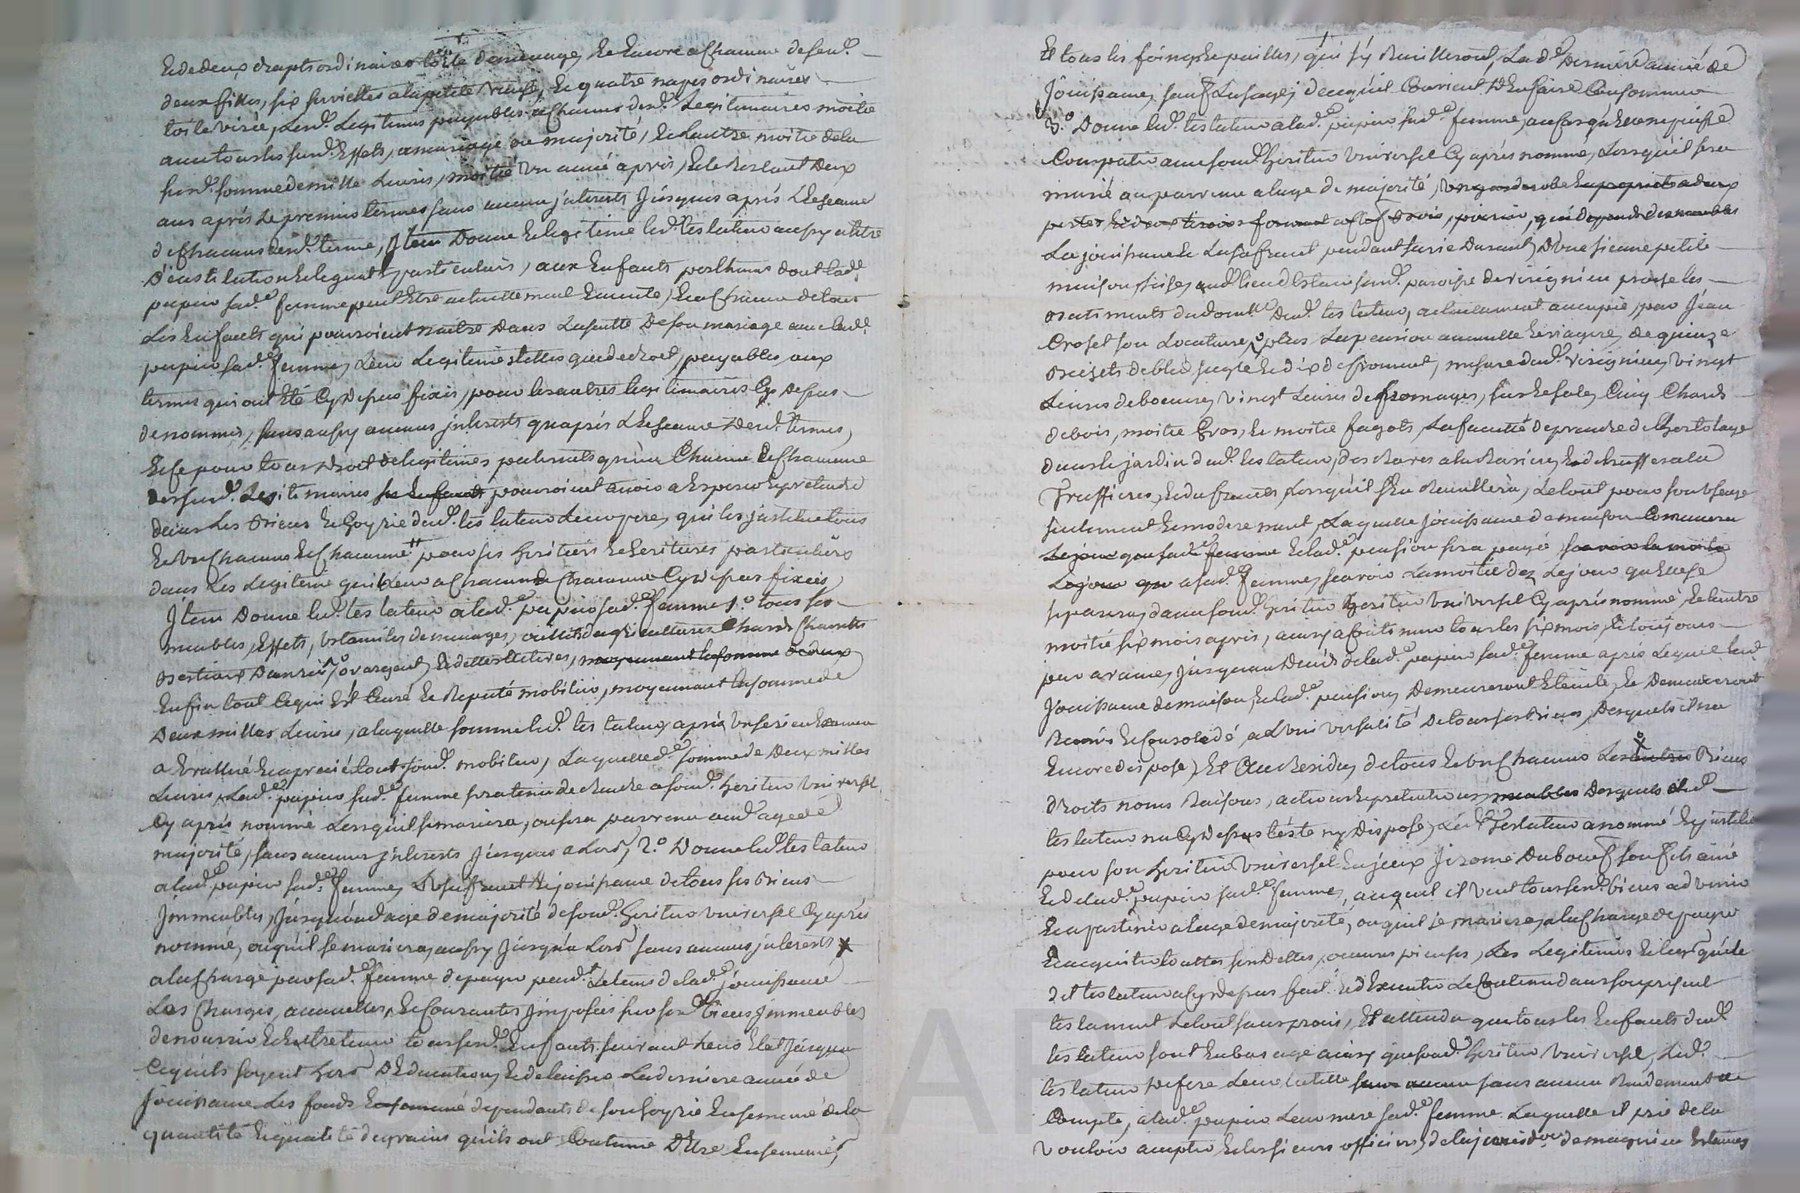 Et de deux draps ordinaires toille de menage, Et Encore a chacune desd.
deux filles, six serviettes a la petite Venise, Et quatre napes ordinaires
toile virée, Lesd. Legitimes payables a chacuns desd. Legitimaires moitié
avec tous les susd. Effets, a mariage ou majorité, Et L'autre moitié de la
susd. somme de mille Livres, moitié Un année après, Et le Restant Deux
ans après Le premier terme sans aucun jnterests Jusques après L'Echeance
de chacuns desd. terme, Jtem Donne Et legitime led. testateur aussy a titre
D'institution Et legats particuliers, aux Enfants posthumes dont lad.
papier sad. femme peut Etre actuellement Enceinte, Et a chacun de tous
Les Enfants qui pourroient naitre Dans La suitte De son mariage avec lad.
papier sad. femme, Leur Legitime telles que de droit, payables, aux
termes qui ont été Cy Depuis fixés, pour les autres legitimaires Cy Depus
denommés, sans aussy aucuns jnterests qu'après L'Echeance desd. termes,
Et ce pour tous Droit de legitimes paternels qu'un Chacun Et Chacune
dessusd. Legitimaires pourroient avoir a Esperer Et pretendre
dans Les Biens Et hoyrie dud. testateur Leur pere, qui les jnstitue tous
Et Un chacuns Et chacune pour ses heritiers Et heritieres particuliers
dans Les Legitime qu'il leur a chacun Et chacune Cy depus fixées,
Jtem Donne led. testateur a lad. papier sad. femme 1.° tous ses
meubles, Effets, Ustancilles de menages, outils d'agriculture Chards Charrettes
Bestiaux Danrés, or argent, Et dettes actives, moyennant la somme de deux
Enfin tout Ce qui Est Censé Et Reputé mobilier, moyennant la somme de
Deux milles Livres, a laquelle somme led. testateur après Un serieux Examen
a Evalué Et aprecié tout sond. mobilier, Laquelle d. somme de Deux milles
Livres, Lad. papier sad. femme sera tenue de rendre a sond. heritier Universel
Cy après nommé Lorsqu'il se mariera, ou sera parvenu aud. age de
majorité, sans aucuns jnterests Jusques a Lors, 2.° Donne led. testateur
a lad. papier sad. femme, L'Usufruit Et jouissance de tous ses Biens
Jmmeubles, Jusqu'aud. age de majorité de sond. heritier universel Cy après
nommé, ou qu'il se mariera, aussy Jusqu'a Lors sans aucuns jnterests
a la Charge par sad. femme de payer pend.t Le tems de lad. jouissance
Les Charges, annuelles, Et Courantes Jmposées sur sesd. biens Jmmeubles
de nourrir Et Entretenir tous sesd. Enfants suivant Leur Etat Jusqu'a
Ce qu'ils soyent hors D'Education, Et de laisser La derniere année de
jouissance Les fonds dependants de son hoyrie Ensemencé de la
quantité Et qualité de grains qu'ils ont Coutume D'Etre Ensemencés,
Et tous les foins Et pailles, qui s'y Recuilleront, Lad. Derniere année de
Jouissance, sauf L'usage, de ce qu'il Convient d'En faire Consommer
3.° Donne led. testateur a lad. papier sad. femme, au Cas qu'Elle ne puisse
Compatir avec sond. heritier Universel Cy après nommé, Lorsqu'il sera
marié ou parvenu a l'age de majorité,
La jouissance Et L'usufruit pendant sa vie Durant, D'Une sienne petite
maison, sise, aud. lieu d susd. paroisse de virigneux proche les
Batiments du domll. Dud. testateur, actuellement occupée, par Jean
Croset son Locataire, plus La pension annuelle Et viagere, de quinze
Bichets de bled seigle Et dix de froment, mesure dud. virigneux, vingt
Livres de beurre, vingt Livres de fromages, six Cinq Chards
de bois, moitié Gros, Et moitié fagots, La faculté de prendre de L'hortolage
dans le jardin dud. testateur, des Raves a la Raviere, Et de truffes a la
Truffieres, Et du fruits, Lorsqu'il s'En Recuillera, Le tout pour son Usage
seulement Et moderement, Laquelle jouissance de maison Commencera
Et lad. pension sera payée
a sad. femme, scavoir La moitié dez Le jour qu'Elle se
separera, d'avec sond. heritier Universel Cy après nommé, Et L'autre
moitié six mois après, ainsy a Continuer tous les six mois, Et toujours
par avance, jusqu'au Decés de lad. papier sad. femme après Lequel lad.
Jouissance de maison Et lad. pension, Demeureront Eteinte, Et Demeureront
Reunis Et Consolidé, a L'Universalité de tous ses biens, Desquels il n'a
Encore disposé, Et Au Residus de tous Et Un chacuns Les Biens
droits noms Raisons, actions Et pretentions, Desquels led.
testateur n'a Cy Depus testé ny Disposé, Led. Testateur a nommé Et jnstitué
pour son heritier Universel Jerome Duboeuf son fils ainé
Et de lad. papier sad. femme, auquel il Veut tous sesd. biens advenir
Et apartenir a l'age de majorité, ou qu'il se mariera, a la Charge de payer
Et acquitter touttes ses Dettes, oeuvres pieuses, Les Legitimes Et legs que le
dit testateur a Cy depus fait, Et d'Executer Le Contenu dans son present
testament Le tout sans procés, Et attendu que tous les Enfants dud.
testateur sont En bas age ainsy que sond. heritier Universel, Led.
testateur defere Leur tutelle sans aucun Rendement de
Compte, a lad. papier Leur mere sad. femme Laquelle il prie de la
Vouloir accepter Et les sieurs officiers de la jurisdon.